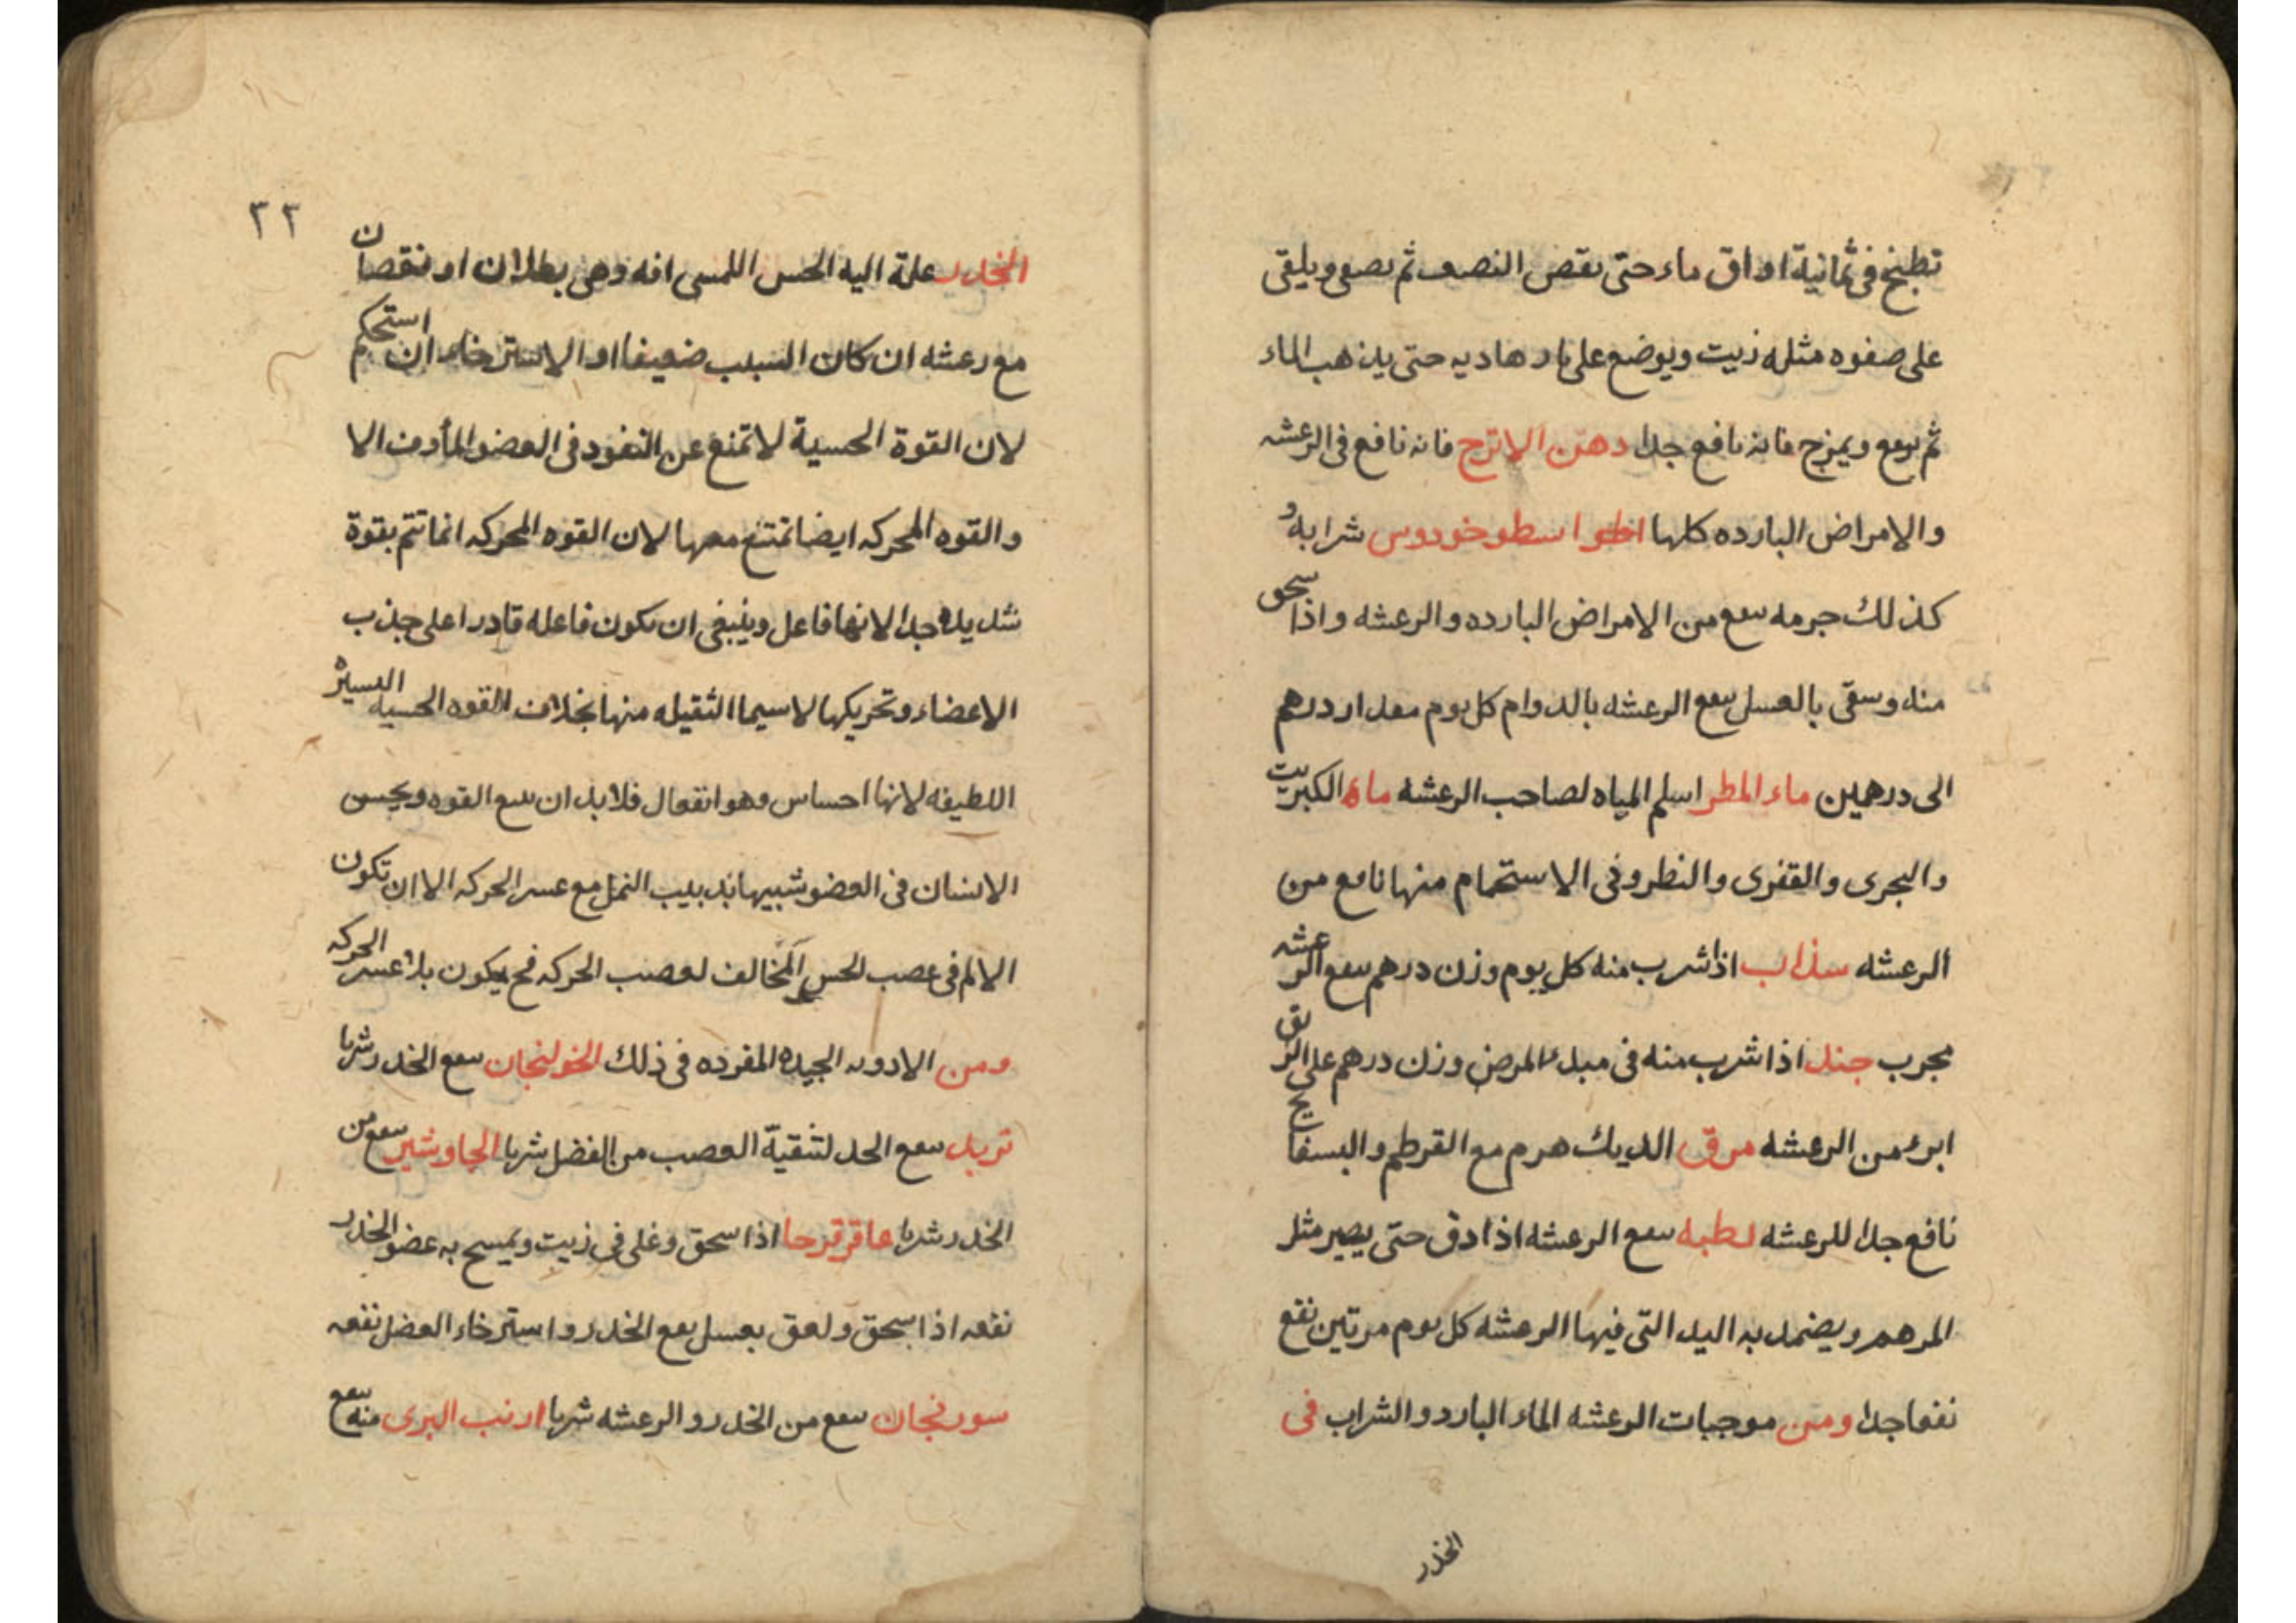 تطبخ فى ثمانية اواق ماء حتى ىقص النصف ثم ىصفى ويلقى
على صفوه مثله زيت ويوضع على نار هاديه حتى يذهب الماء
ثم ىرفع ويمزج فانه نافع جدا دهن الاترج فانه نافع فى الرعشه
والامراض البارده كلها اسطوخودوس شرابه و
كذلك جرمه ىىفع من الامراض البارده والرعشه واذا سحق
منه وسقى بالعسل ىىفع الرعشه بالدوام كل يوم مقدار درهم
الى درهمين ماء المطر اسلم المياه لصاحب الرعشه ماء الكبريت
والبحرى والقفرى والنطروفى الاستحمام منها نافع من
الرعشه سذاب اذا شرب منه كل يوم وزن درهم ىىفع الرعشه
مجرب جند اذا شرب منه فى مبدء المرض وزن درهم على الريق
ابرء من الرعشه مرق الديك هرم مع القرطم والبسفايج
نافع جدا للرعشه ىىفع الرعشه اذا دق حتى يصير مثل
المرهم ويضمد به اليد التى فيها الرعشه كل يوم مرتين نفع
نفعا جدا ومن موجبات الرعشه الماء البارد والشراب فى
الخدر
٢٢
الخدر علة اليه الحس اللمسى افه وهى بطلان او نقصان
مع رعشه ان كان السبب ضعيفا او الاسترخاء ان استحكم
لان القوة الحسية لا تمنع عن النفود فى العضو المأوف الا
والقوه المحركه ايضا تمتنع معها لان القوه المحركه انما تتم بقوة
شديده جدا لانها فاعل وينبغى ان يكون فاعله قادرا على جذب
الاعضاء وتحريكها لاسيما الثقيله منها بخلاف القوه الحسيه اليسيره
اللطيفه لانها احساس وهو انفعال فلا بد ان ىىىع القوه ويحس
الانسان فى العضو شبيها بدبيب النمل مع عسر الحركه الا ان تكون
الالم فى عصب الحس المخالف لعصب الحركه فح يكون بلا عسر الحركه
ومن الادويه الجيده المفرده فى ذلك الخولنجان ىىفع الخدر شربا
تربد ىىفع الخدر لتنقية العصب من الفضل شربا الجاوشير ىىفع من
الخدر شربا عاقرقرحا اذا سحق وغلى فى زيت ويمسح به عضو الخدر
نفعه اذا سحق ولعق بعسل ىفع الخدر واسترخاء العضل نفعه
سورنجان ىىفع من الخدر والرعشه شربا ارنب البرى منه ىىفع